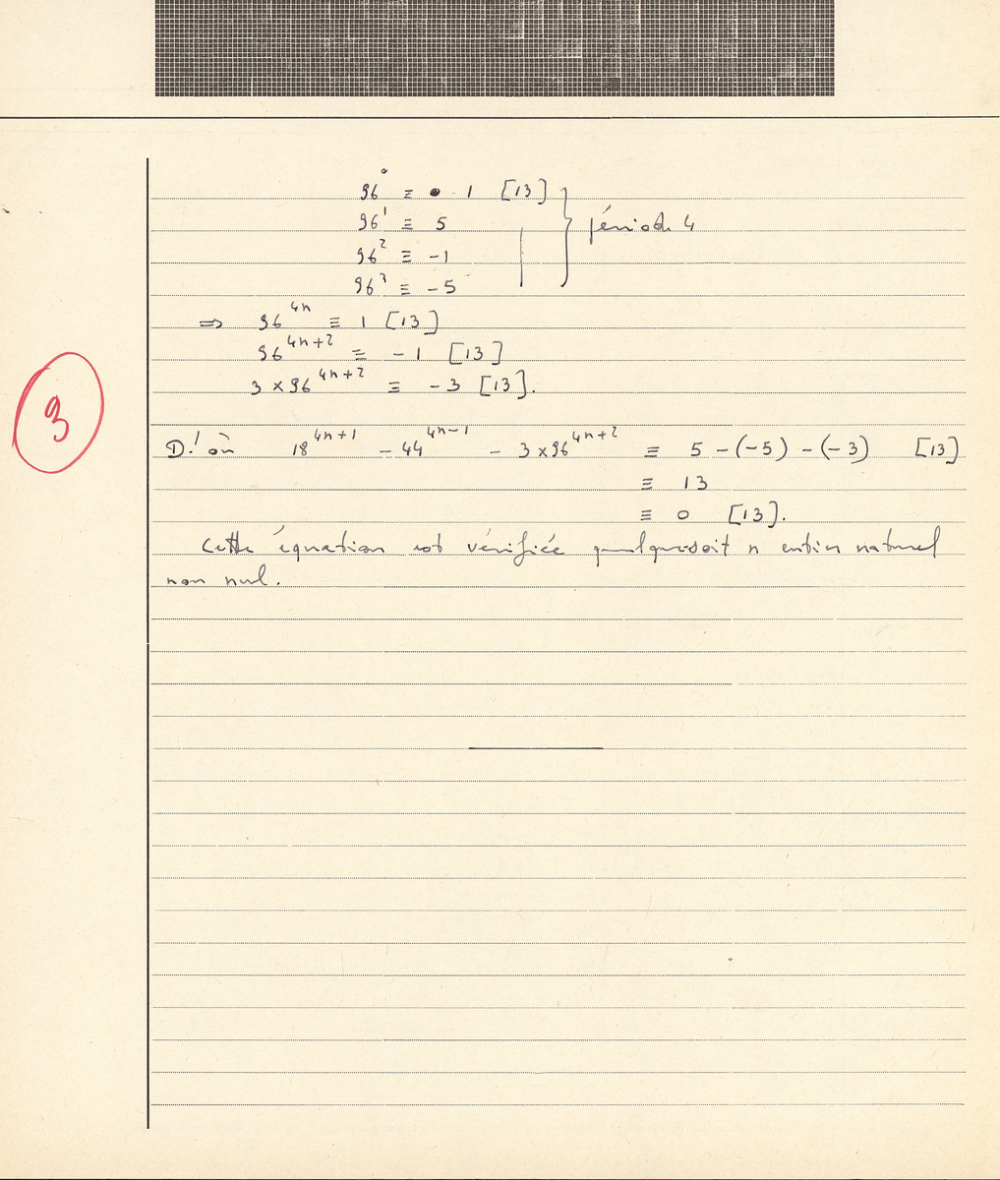 96⁰ ≡ 1 [13]
96¹ ≡ 5
96² ≡ -1
96³ ≡ -5
période 4
⇒ 96⁴ⁿ ≡ 1 [13]
96⁴ⁿ⁺² ≡ -1 [13]
3 × 96⁴ⁿ⁺² ≡ -3 [13].
3
D'où 18⁴ⁿ⁺¹ - 44⁴ⁿ⁻¹ - 3 × 96⁴ⁿ⁺² ≡ 5 - (-5) - (-3) [13]
≡ 13
≡ 0 [13].
Cette équation est vérifiée quelquesoit n entier naturel
non nul.